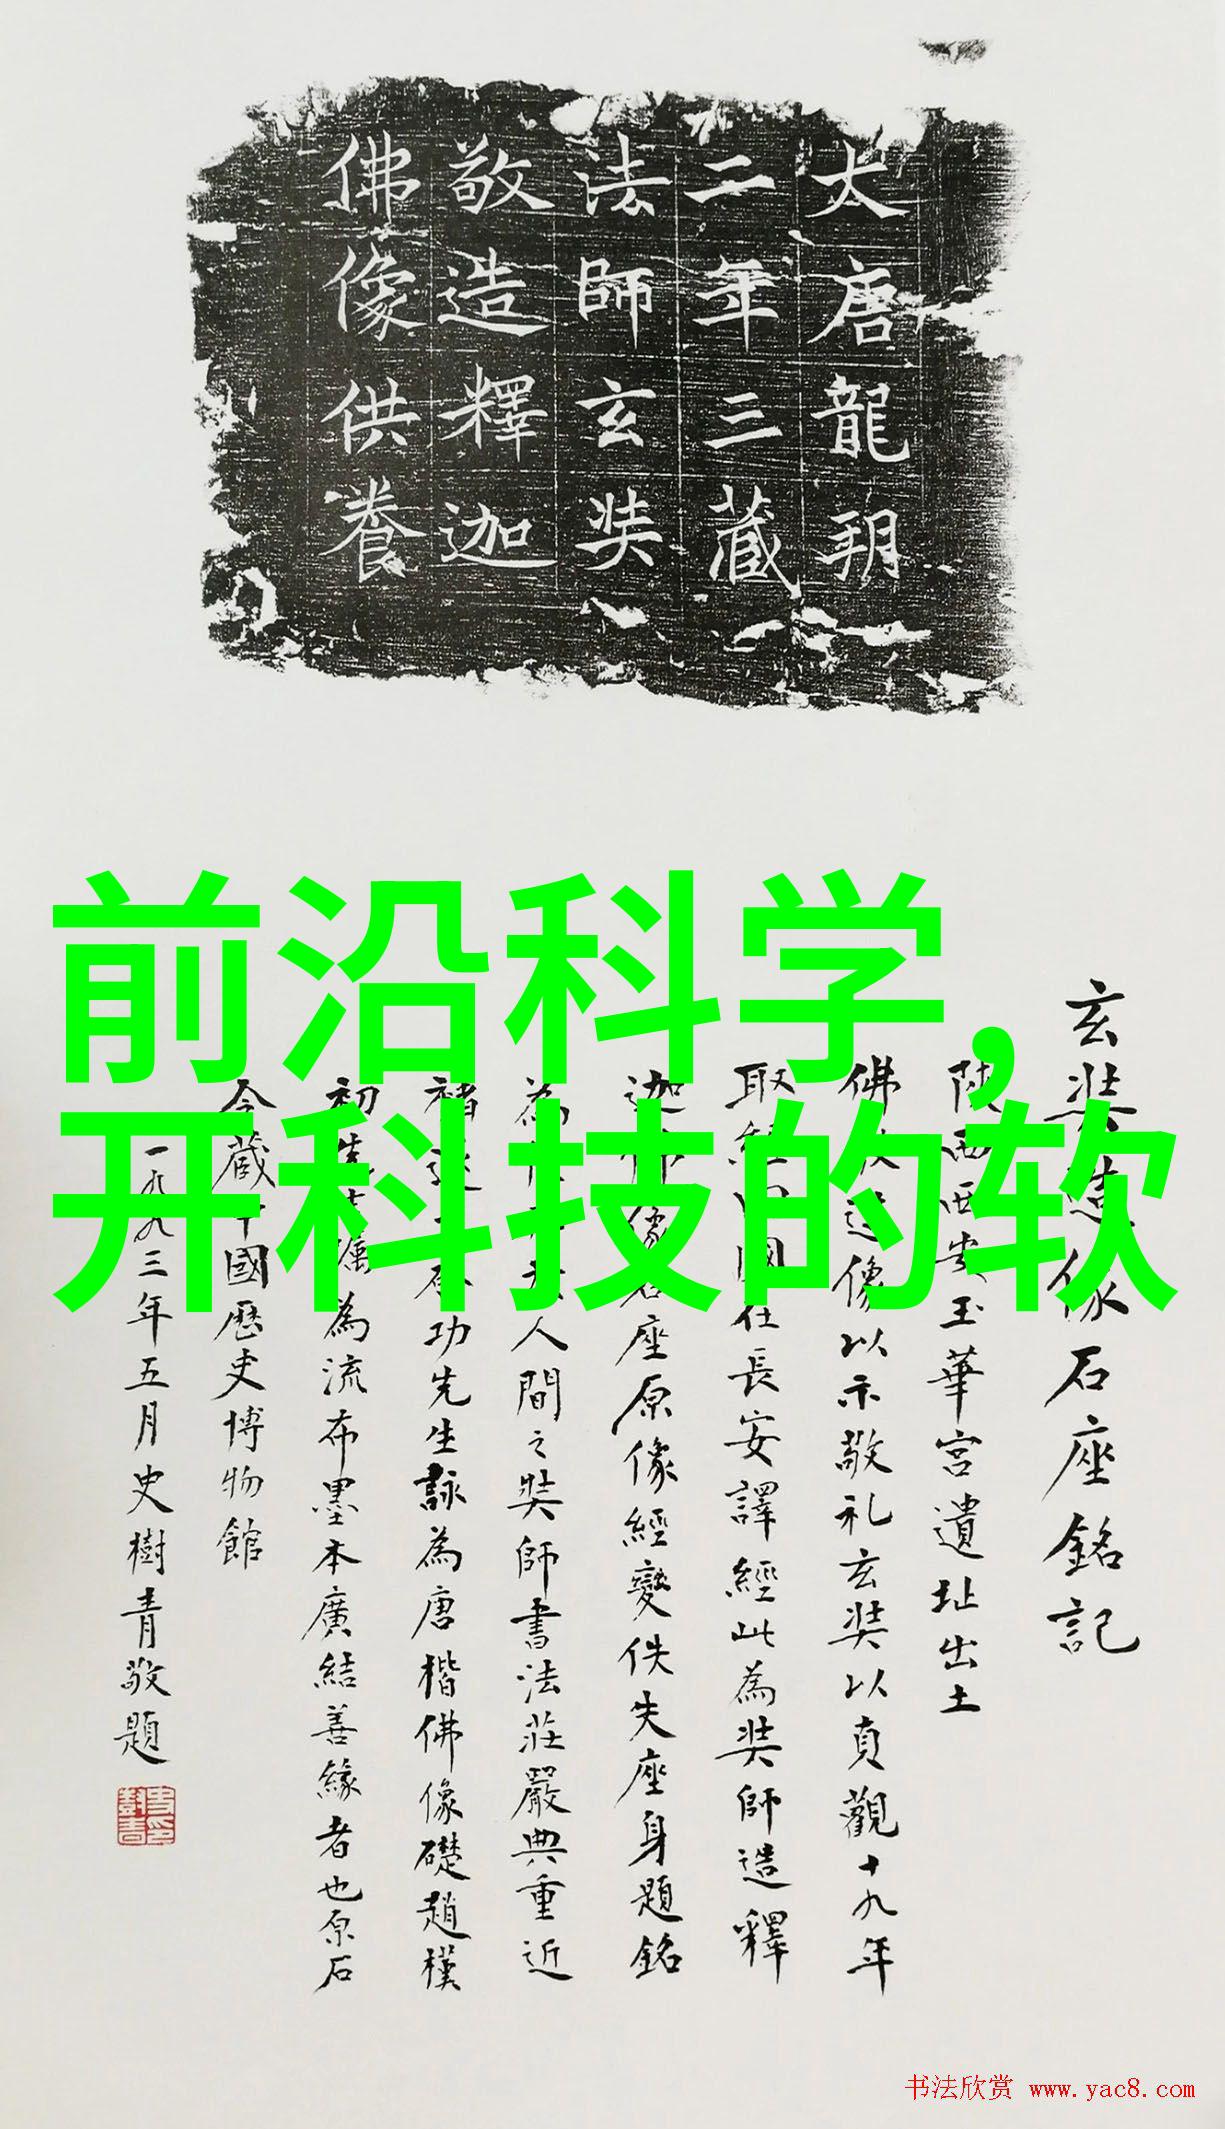 大唐龍朔
二年三藏
法師玄奘
敬造釋迦
佛像供養
前沿科学,
开科技的软
玄奘造像石座銘記
陝西西安玉華宮遺址出土
佛造像以示敬礼玄奘以貞觀十九年
取經國在長安譯經此為奘師造釋
迦像石座原像經變佚失座身題銘
為人間之奘師書法莊嚴典重近
褚遂功先生詠為唐楷佛像礎趙樸
初先生囑為流布墨本廣結善緣者也原石
今藏中國歷史博物館
一九九三年五月史樹青敬題
书法欣赏 www.yac8.com